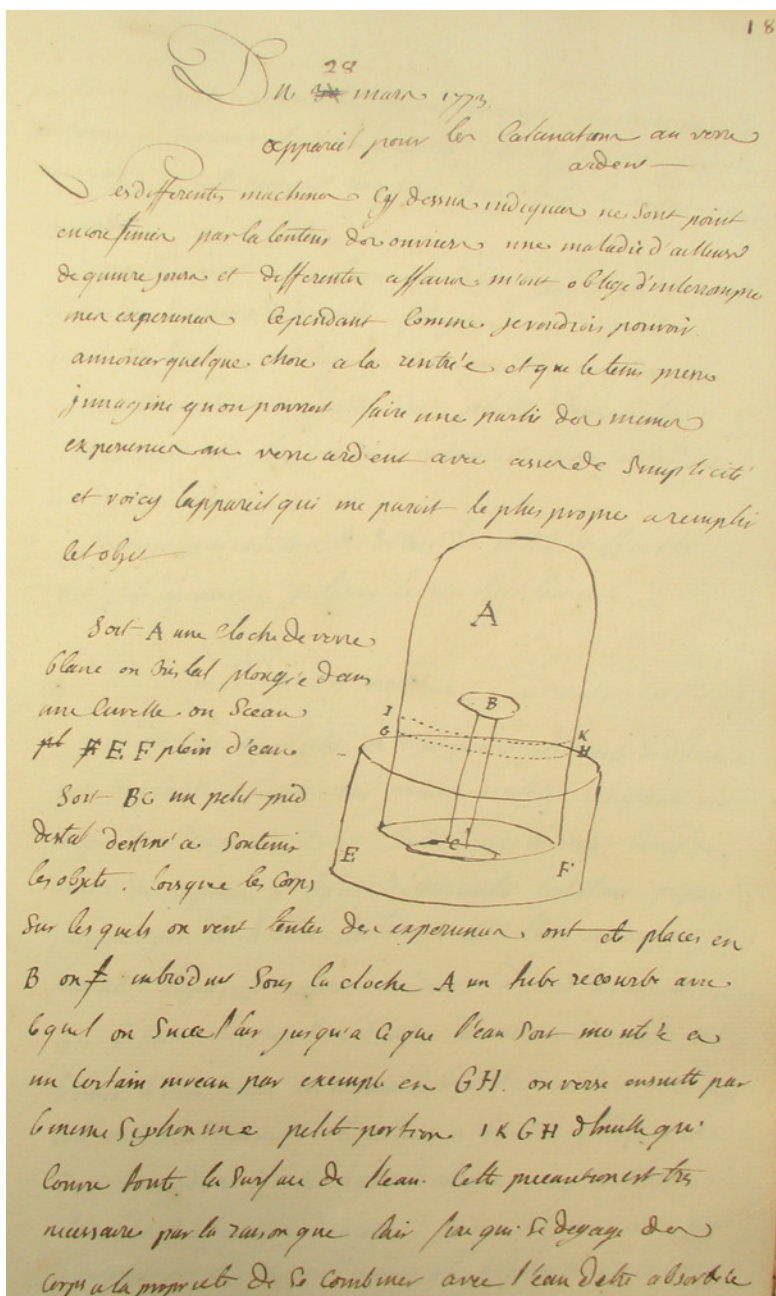 18
Du 28 mars 1773.
appareil pour les Calcinations au verre
ardent
Les differentes machines Cy dessus indiquees ne Sont point
encore finies par la lenteur des ouvriers une maladie d'ailleurs
de quinze jours et differentes affaires m'ont obligé d'interrompre
mes experiences Cependant Comme je voudrois pouvoir
annoncer quelque chose a la rentrée et que le tems presse
j'imagine qu'on pourroit faire une partie des memes
experiences au verre ardent avec assez de Simplicité
et voicy lappareil qui me paroit le plus propre a remplir
Cet objet
Soit A une Cloche de verre
blanc ou Cristal plongée dans
une Cuvette ou Sceau
E F plein d'eau
Soit BC un petit pied
destal destiné a Soutenir
les objets. lorsque les Corps
Sur lesquels on veut tenter des experiences ont ete places en
B on introduit Sous la cloche A un tube recourbé avec
lequel on Succe l'air jusqu'a Ce que l'eau Soit montée a
un Certain niveau par exemple en GH. on verse ensuitte par
le meme Siphon une petit portion IKGH d'huille qui
Couvre toute la Surface de l'eau. Cette precaution est tres
necessaire par la raison que lair fixe qui Se degage des
Corps a la proprieté de Se Combiner avec l'eau d'etre absorbé
A
B
I
G
K
H
C
E
F